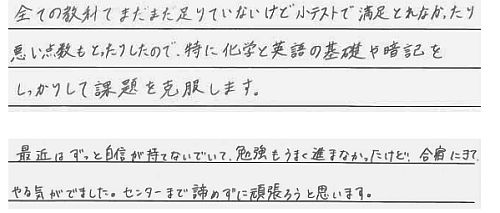 全ての教科でまだまだ足りていないけど小テストで満足とれなかったり
悪い点数もとったりしたので、特に化学と英語の基礎や暗記を
しっかりして課題を克服します。
最近はずっと自信が持てないでいて、勉強もうまく進まなかったけど、合宿にきて、
やる気がでました。センターまで諦めずに頑張ろうと思います。